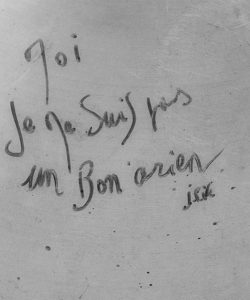 Moi
Je ne suis pas
un Bon arien